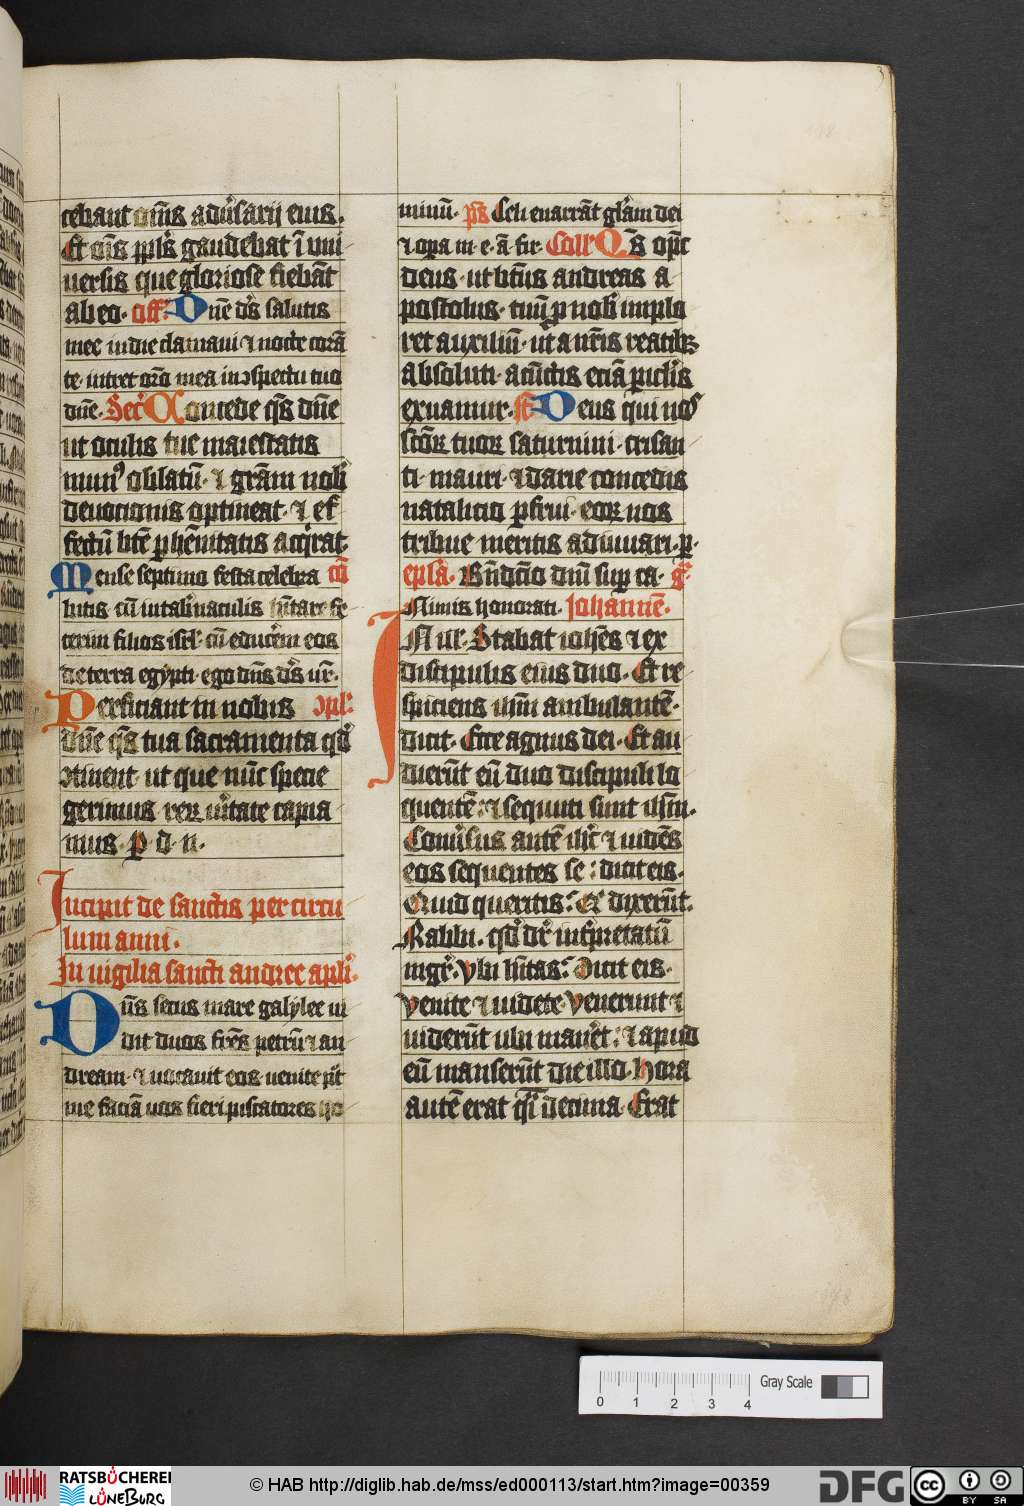 cebant om̄s adu̓sarij eius.
Et om̄s ppl̓s gaudebat ī uni
uersis que gloriose fiebāt
ab eo. off̓. Dn̄e ds̄ salutis
mee in die clamaui ⁊ nocte corā
te. intret or̄o mea in ↄspectu tuo
dn̄e. Secr̓ Concede qs̄ dn̄e
ut oculis tue maiestatis
mun⁹ oblatū. ⁊ grām nob̓
deuocionis optineat. ⁊ ef
fectū btē phēnitatis acq̓rat.
Mense septimo festa celebra cō
bitis. cū in tab̓naculis hītare fe
cerim filios isrl̓. cū educ̓em eos
de terra egypti. ego dn̄s ds̄ ur̄.
Perficiant in nobis ↄpl̓.
dn̄e qs̄ tua sacramenta qd̓
ↄtinent. ut que nūc specie
gerimus. reꝝ u̓itate capia
mus. P. d. n.
Incipit de sanctis per circu
lum anni.
In uigilia sancti andree apl̓i.
Dn̄s secus mare galylee ui
dit duos fr̄es petrū ⁊ an
dream. ⁊ uocauit eos uenite p̓t
me faciā uos fieri piscatores ho
minū. ps̄ Celi enarrāt gl̓am dei
⁊ opa m. e. ā. fir. Coll̓ Qs̄ op̄c
deus. ut bt̄us andreas a
postolus. tuū p nob̓ implo
ret auxiliū. ut a nr̄is reatibꝫ
absoluti. a cūctis eciā picl̓is
exuamur. sc̄ Deus qui nos
scōꝝ tuoꝝ saturnini. crisan
ti. mauri. ⁊ darie concedis
natalicio pfrui. eoꝝ nos
tribue meritis adiuuari. p.
epl̓a. Bn̄dc̄io dn̄i sup ca. gr̄.
Nimis honorati. Johannē.
In il̓. Stabat ioh̄es ⁊ ex
discipulis eius duo. Et re
spiciens ih̄m ambulantē.
dicit. Ecce agnus dei. Et au
dierūt eū duo discipuli lo
quentē. ⁊ sequuti sunt ih̄m.
Conu̓sus autē ih̄c ⁊ uidēs
eos sequentes se: dicit eis.
Quid queritis? Et dixerūt.
Rabbi. qd̓ dr̄ int̓pretatū
mgr̓. vbi hītas? Dicit eis.
Venite ⁊ uidete. Venerunt ⁊
uiderūt ubi man̓et: ⁊ apud
eū manserūt die illo. hora
autē erat q̓i decima. Erat
0 1 2 3 4 Gray Scale
RATSBÜCHEREI
LÜNEBURG
© HAB http://diglib.hab.de/mss/ed000113/start.htm?image=00359
DFG
cc BY SA